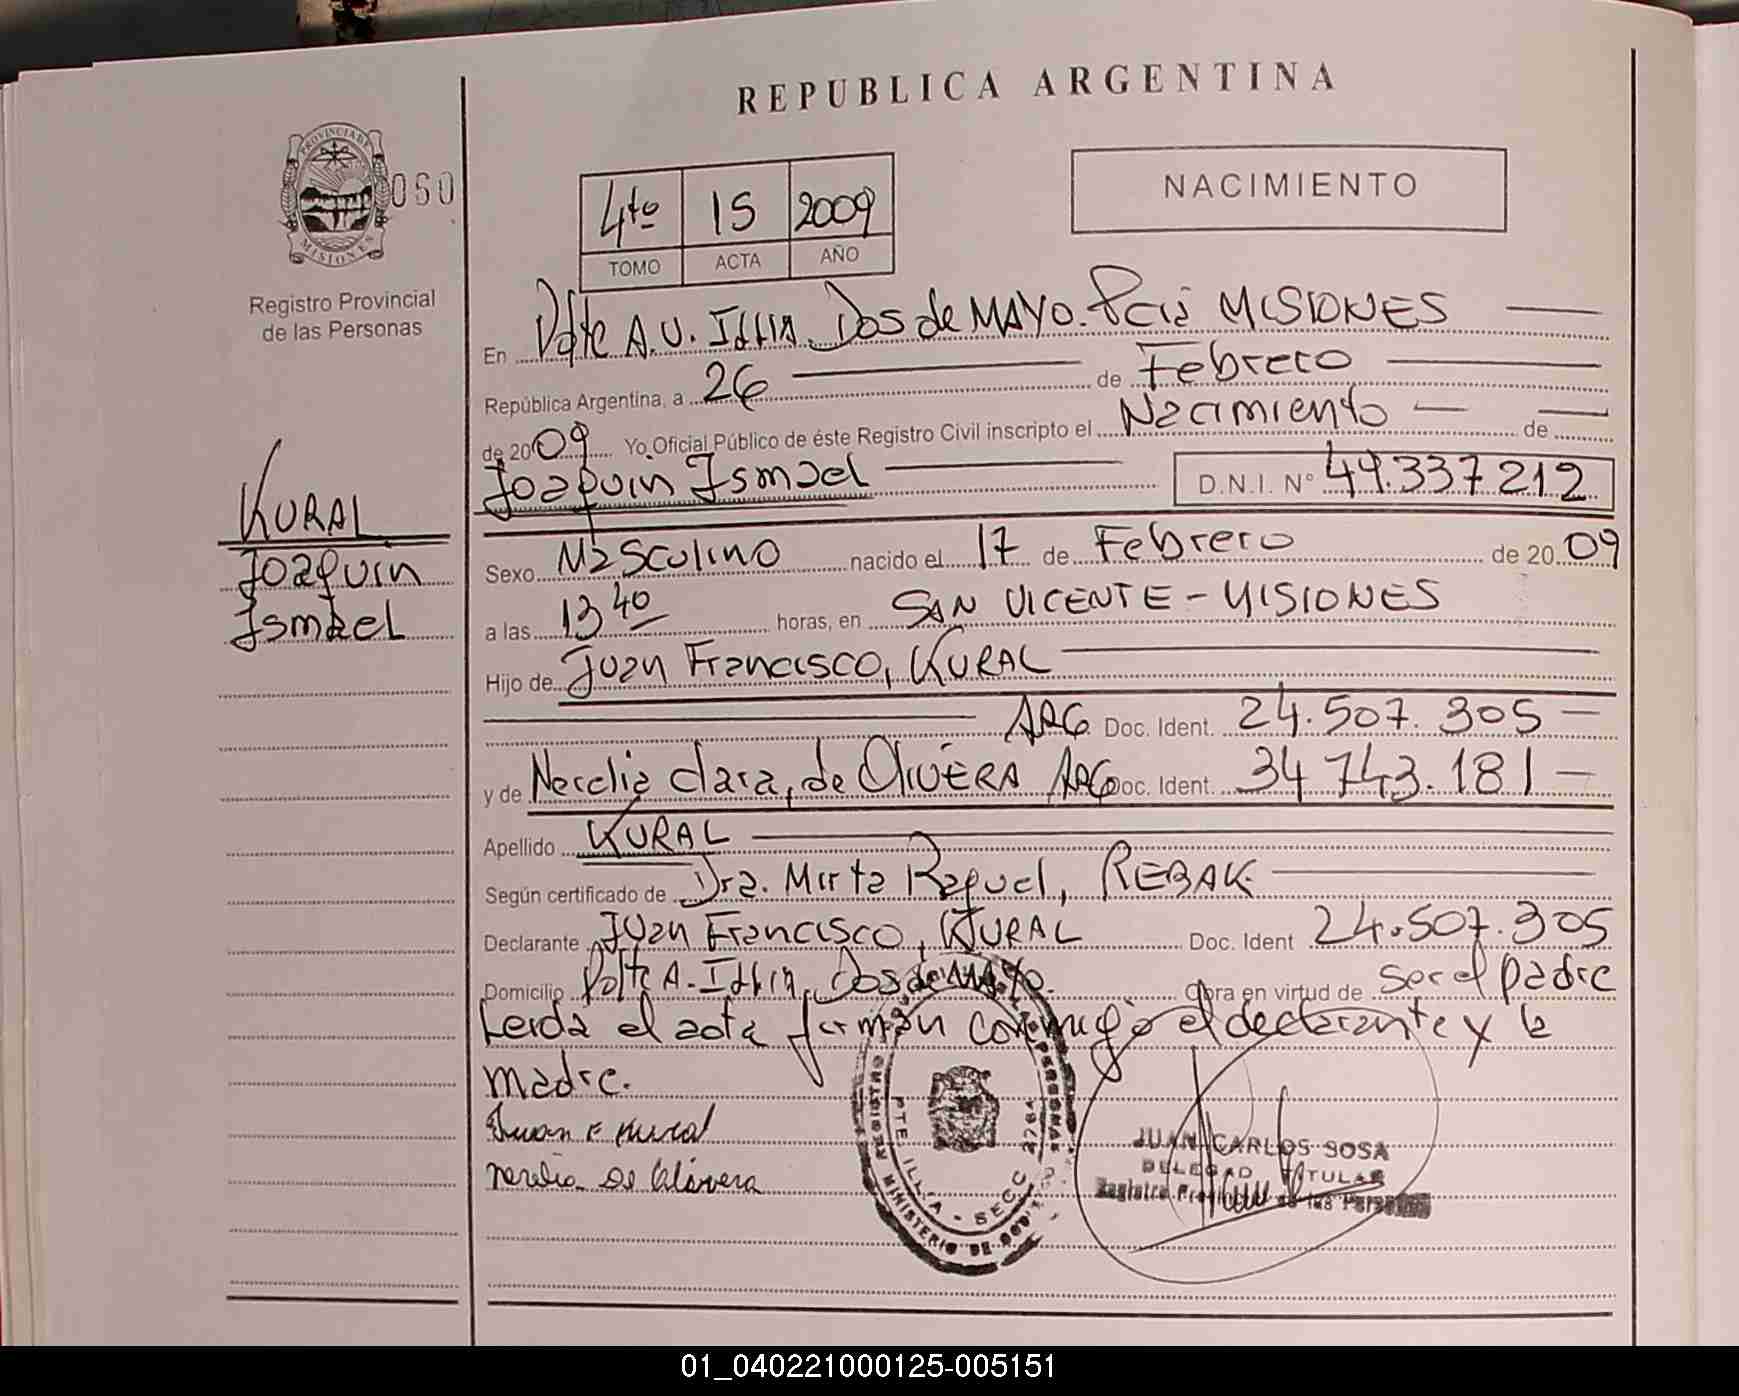 REPUBLICA ARGENTINA
PROVINCIA DE MISIONES
060
4to 15 2009
TOMO ACTA AÑO
NACIMIENTO
Registro Provincial
de las Personas
En Pdte A.U. Illia, Dos de MAYO. Pcia MISIONES
República Argentina, a 26 de Febrero
de 2009 Yo Oficial Público de éste Registro Civil inscripto el Nacimiento de
Joaquin Ismael D.N.I. Nº 49.337212
KURAL
Joaquin
Ismael
Sexo Masculino nacido el 17 de Febrero de 2009
a las 13 40 horas, en SAN VICENTE - MISIONES
Hijo de Juan Francisco, KURAL
ARG Doc. Ident. 24.507.305
y de Nerelia Clara, de OlivERA ARG Doc. Ident. 34743.181
Apellido KURAL
Según certificado de Dra. Mirta Raquel, REBAK
Declarante Juan Francisco, KURAL Doc. Ident 24.507.305
Domicilio Pdte A. Illia, Dos de MAYO. Obra en virtud de ser el padre
Leida el acta firman conmigo el declarante y la
madre.
Juan F Kural
Nerelia De Olivera
PTE. ILLIA - SECC 2764
MINISTERIO DE
JUAN CARLOS SOSA
DELEGADO TITULAR
Registro Provincial de las Personas
01_040221000125-005151